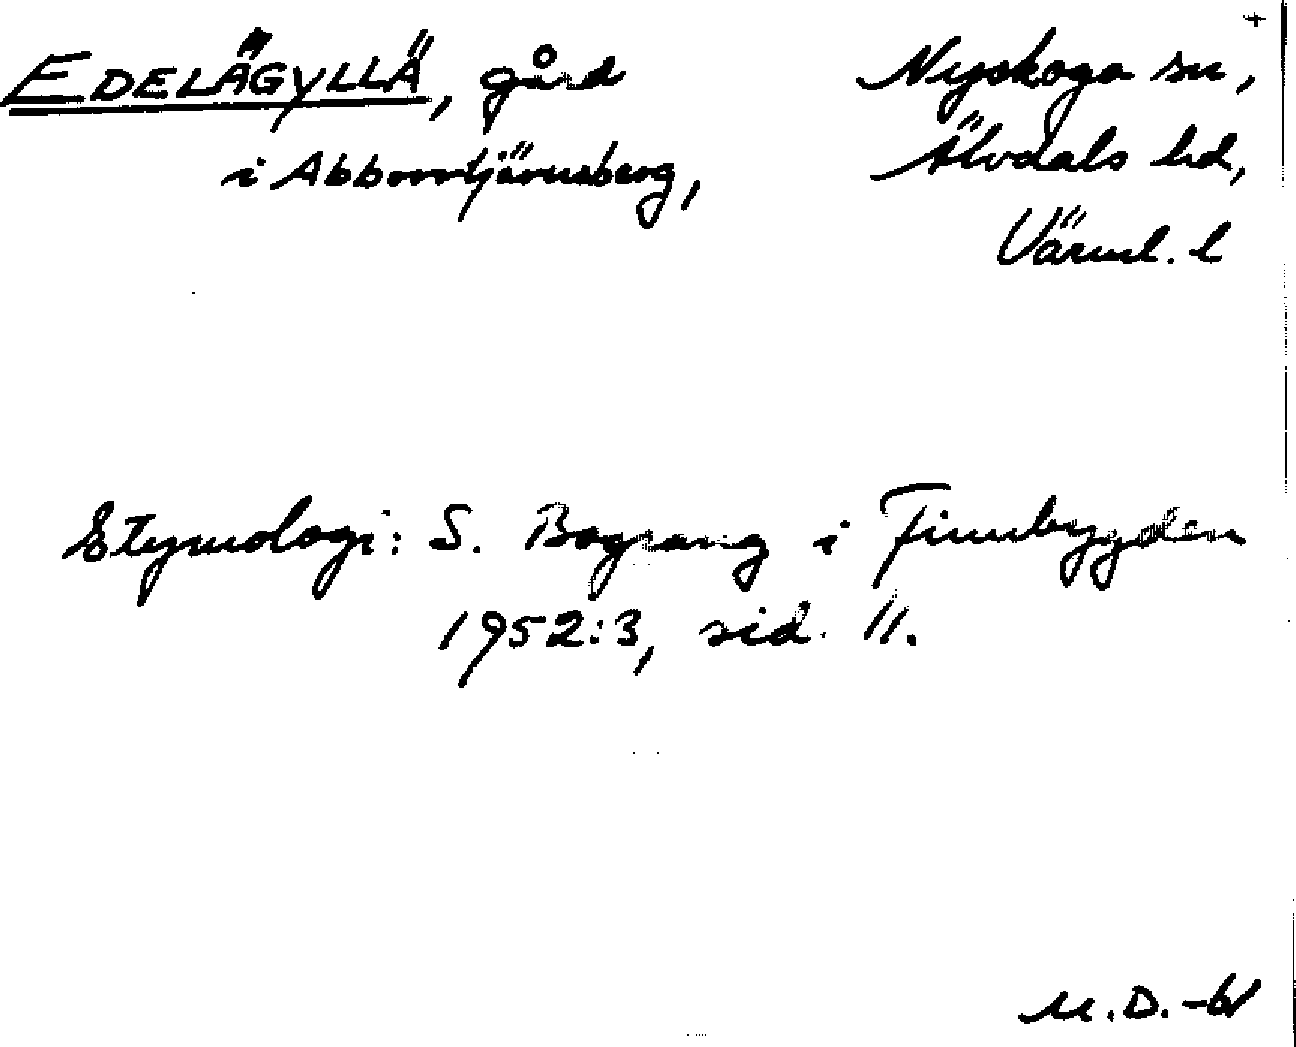 EDELÄGYLLÄ, gård
i Abborrtjärnsberg,
Nyskoga sn,
Älvdals hd,
Värml. l
Etymologi: S. Bograng i Finnbygden
1952:3, sid. 11.
M.D. -61